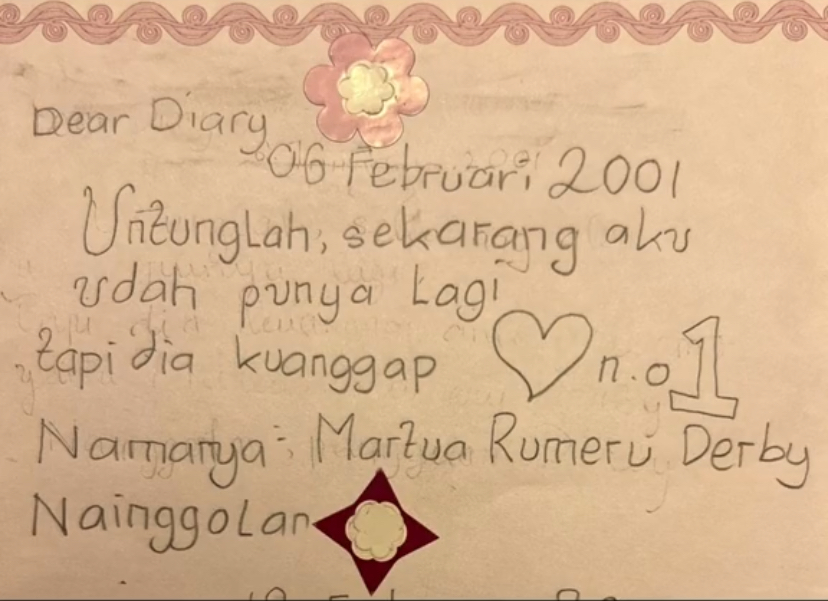 Dear Diary
06 Februari 2001
Untunglah, sekarang aku
udah punya lagi
tapi dia kuanggap ♡ n.o 1
Namanya: Martua Rumeru Derby
Nainggolan